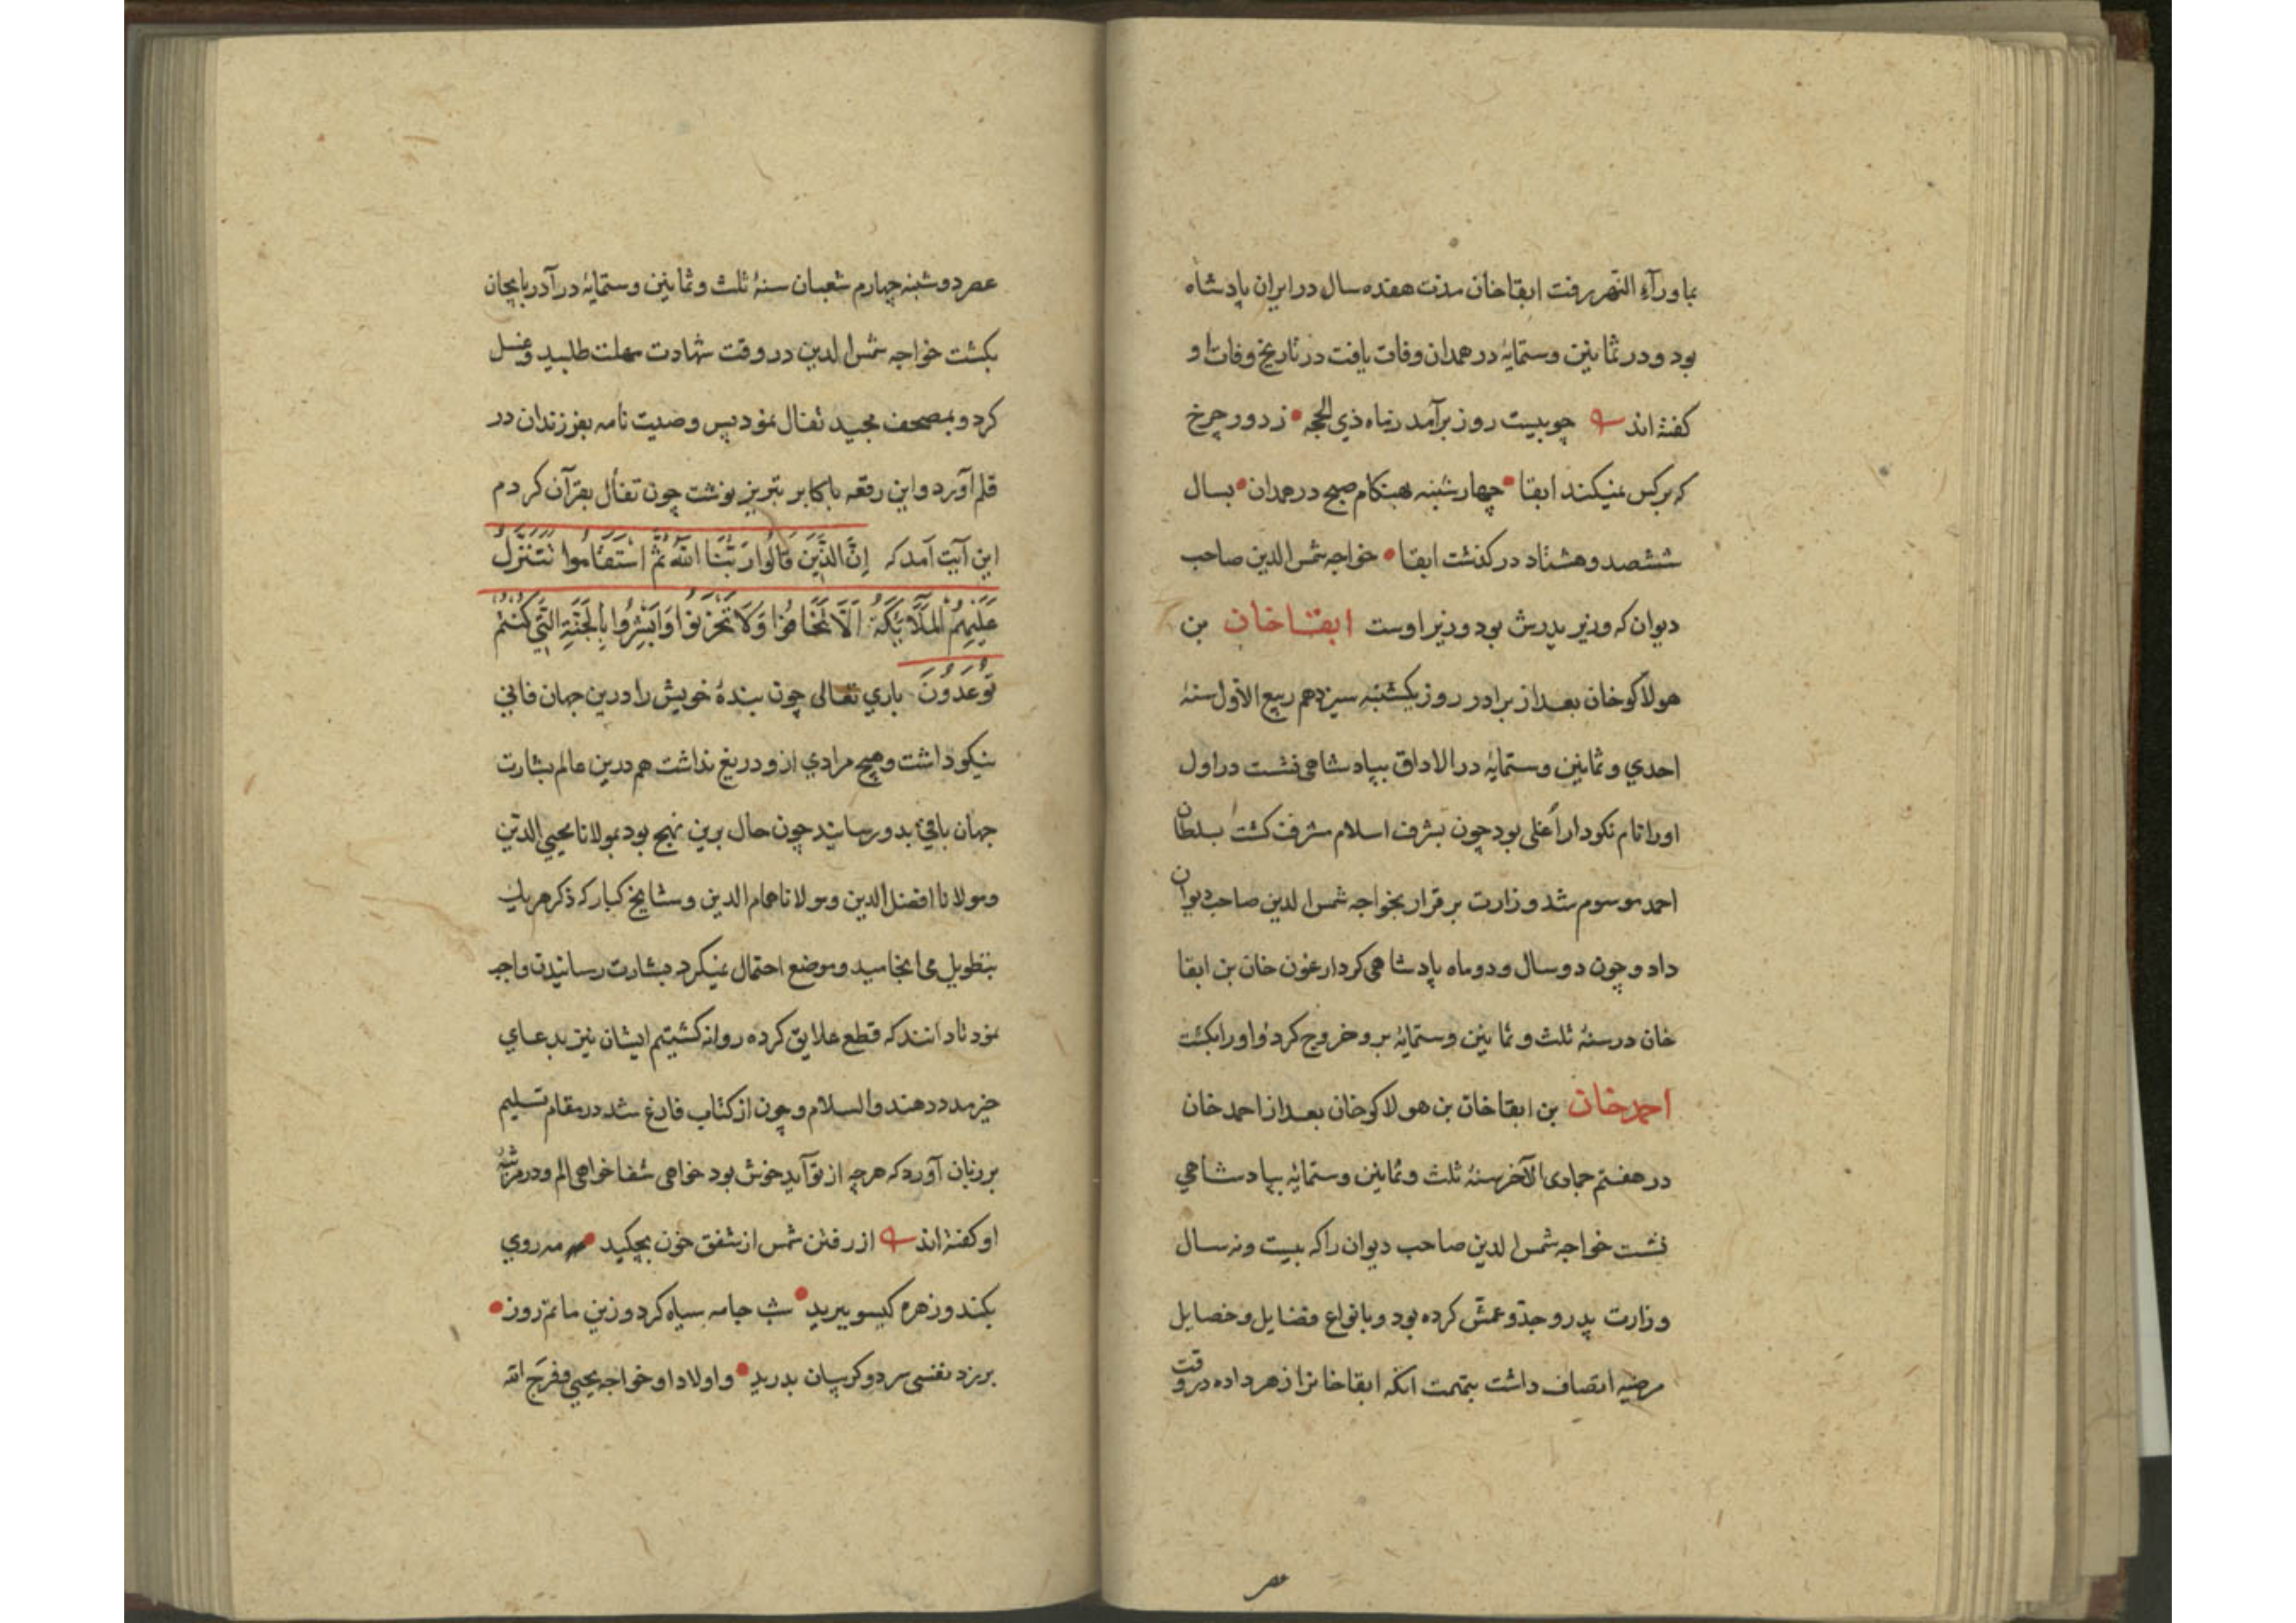 بماورآء النّهر برفت ابقاخان مدت هفده سال در ایران پادشاه
بود و در ثمانین وستمایٔه در همدان وفات یافت در تاریخ وفات او
کفته اند چو بیست روز برآمد زماه ذي الحجه • ز دور چرخ
که برکس نمیکند ابقا • چهارشنبه بهنکام صبح در همدان • بسال
ششصد و هشتاد درکذشت ابقا • خواجه شمس الدین صاحب
دیوان که وزیر پدرش بود وزیر اوست ابقاخان بن
هولاکوخان بعد از برادر روز یکشنبه سیزدهم ربیع الاوّل سنهٔ
احدي و ثمانین وستمایٔه در الاداق بپادشاهی نشست در اول
اورا نام نکودار اُغلی بود چون بشرف اسلام مشرف کشت بسلطان
احمد موسوم شد وزارت برقرار بخواجه شمس الدین صاحب دیوان
داد و چون دو سال و دو ماه پادشاهی کرد ارغون خان بن ابقا
خان در سنهٔ ثلث و ثمانین وستمایٔه برو خروج کرد و اورا بکشت
احمدخان بن ابقاخان بن هولاکوخان بعد از احمدخان
در هفتم جمادی الآخر سنهٔ ثلث و ثمانین وستمایٔه بپادشاهي
نشست خواجه شمس الدین صاحب دیوان را که بیست و نه سال
وزارت پدر و جدّ و عمّش کرده بود و بانواع فضایل و خصایل
مرضیه اتصاف داشت بتهمت انکه ابقاخانرا زهر داده در وقت
عصر
عصر دوشنبه چهارم شعبان سنهٔ ثلث و ثمانین وستمایٔه در آدربایجان
بکشت خواجه شمس الدین در وقت شهادت مهلت طلبید و غسل
کرد و بمصحف مجید تفال نمود پس وصیت نامه بفرزندان در
قلم آورد و این رقعه باکابر تبریز نوشت چون تفأل بقرآن کردم
این آیت آمد که إِنَّ الَّذِینَ قَالُوا رَبُّنَا اللّٰهُ ثُمَّ اسْتَقَامُوا تَتَنَزَّلُ
عَلَیْهِمُ الْمَلَآئِکَةُ اَلَّا تَخَافُوا وَلَا تَحْزَنُوا وَاَبْشِرُوا بِالْجَنَّةِ الَّتِی کُنْتُمْ
تُوعَدُونَ باري تعالی چون بندهٔ خویش را درین جهان فاني
نیکو داشت و هیچ مرادي ازو دریغ نداشت هم درین عالم بشارت
جهان باقي بدو رسانید چون حال برین نهج بود بمولانا محیي الدین
و مولانا افضل الدین و مولانا همام الدین و مشایخ کبار که ذکر هریك
بتطویل می انجامید و موضع احتمال نمیکرد بشارت رسانیدن واجب
نمود تا دانند که قطع علایق کرده روانه کشتیم ایشان نیز بدعاي
خیر مدد دهند والسلام و چون از کتاب فارغ شد در مقام تسلیم
بر زبان آورد که هرچه از تو آید خوش بود خواهی شفا خواهی الم و در مرثیه
او کفته اند از رفتن شمس از شفق خون بچکید • مه روي
بکند و زهره کیسو ببرید • شب جامه سیاه کرد و زین ماتم روز •
برزد نفسی سرد و کریبان بدرید • و اولاد او خواجه یحیي و فرج الله